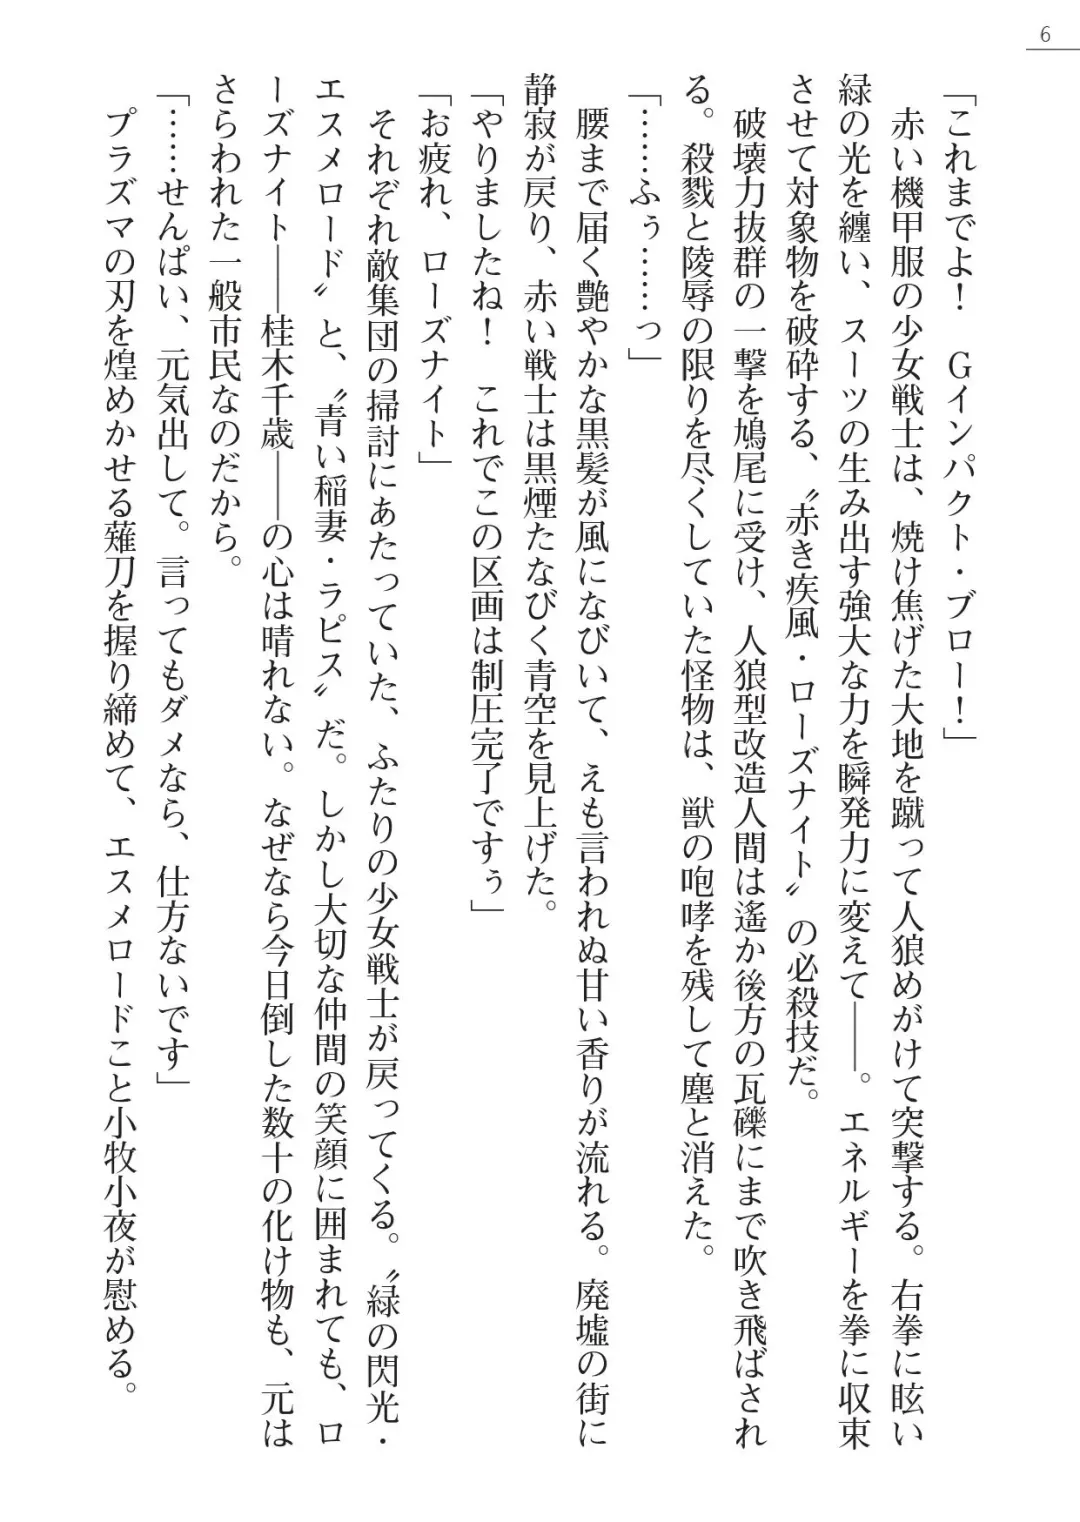 6
「これまでよ！　Ｇインパクト・ブロー！」
　赤い機甲服の少女戦士は、焼け焦げた大地を蹴って人狼めがけて突撃する。右拳に眩い
緑の光を纏い、スーツの生み出す強大な力を瞬発力に変えて――。エネルギーを拳に収束
させて対象物を破砕する、〝赤き疾風・ローズナイト〟の必殺技だ。
　破壊力抜群の一撃を鳩尾に受け、人狼型改造人間は遙か後方の瓦礫にまで吹き飛ばされ
る。殺戮と陵辱の限りを尽くしていた怪物は、獣の咆哮を残して塵と消えた。
「……ふぅ……っ」
　腰まで届く艶やかな黒髪が風になびいて、えも言われぬ甘い香りが流れる。廃墟の街に
静寂が戻り、赤い戦士は黒煙たなびく青空を見上げた。
「やりましたね！　これでこの区画は制圧完了ですぅ」
「お疲れ、ローズナイト」
　それぞれ敵集団の掃討にあたっていた、ふたりの少女戦士が戻ってくる。〝緑の閃光・
エスメロード〟と、〝青い稲妻・ラピス〟だ。しかし大切な仲間の笑顔に囲まれても、ロ
ーズナイト――桂木千歳――の心は晴れない。なぜなら今日倒した数十の化け物も、元は
さらわれた一般市民なのだから。
「……せんぱい、元気出して。言ってもダメなら、仕方ないです」
　プラズマの刃を煌めかせる薙刀を握り締めて、エスメロードこと小牧小夜が慰める。